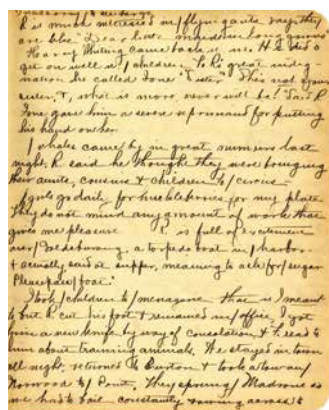 R is much interested in / flying gants says they
are like "Dear little maids in long gowns"
Harry Whiting came back w. us. H I did o
get on well w / children. To his great indig-
nation she called Ione "Sister" "She's not your
sister, &, what is more never will be! Said R
Ione gave him a severe reprimand for putting
his hand on her.
/ whales came by in great numbers last
night, R said he thought they were bringing
their aunts, cousins & children to / circus —
/ girls go daily for huckleberries, for my plate
They do not mind any amount of work that
gives me pleasure R is full of excitement
over / Goldsborough, a torpedo boat in / harbor
& actually said at supper, meaning to ask for / sugar
Please pass / boat."
I took / children to / menagerie that is I meant
to but R cut his foot & remained in / office, I got
him a new knife by way of consolation & F. read to
him about training animals. He stayed in town
all night, returned to Burton & took a tow any
Norwood to / Point, They sprung / Madrone so
we had to bail constantly rowing across to